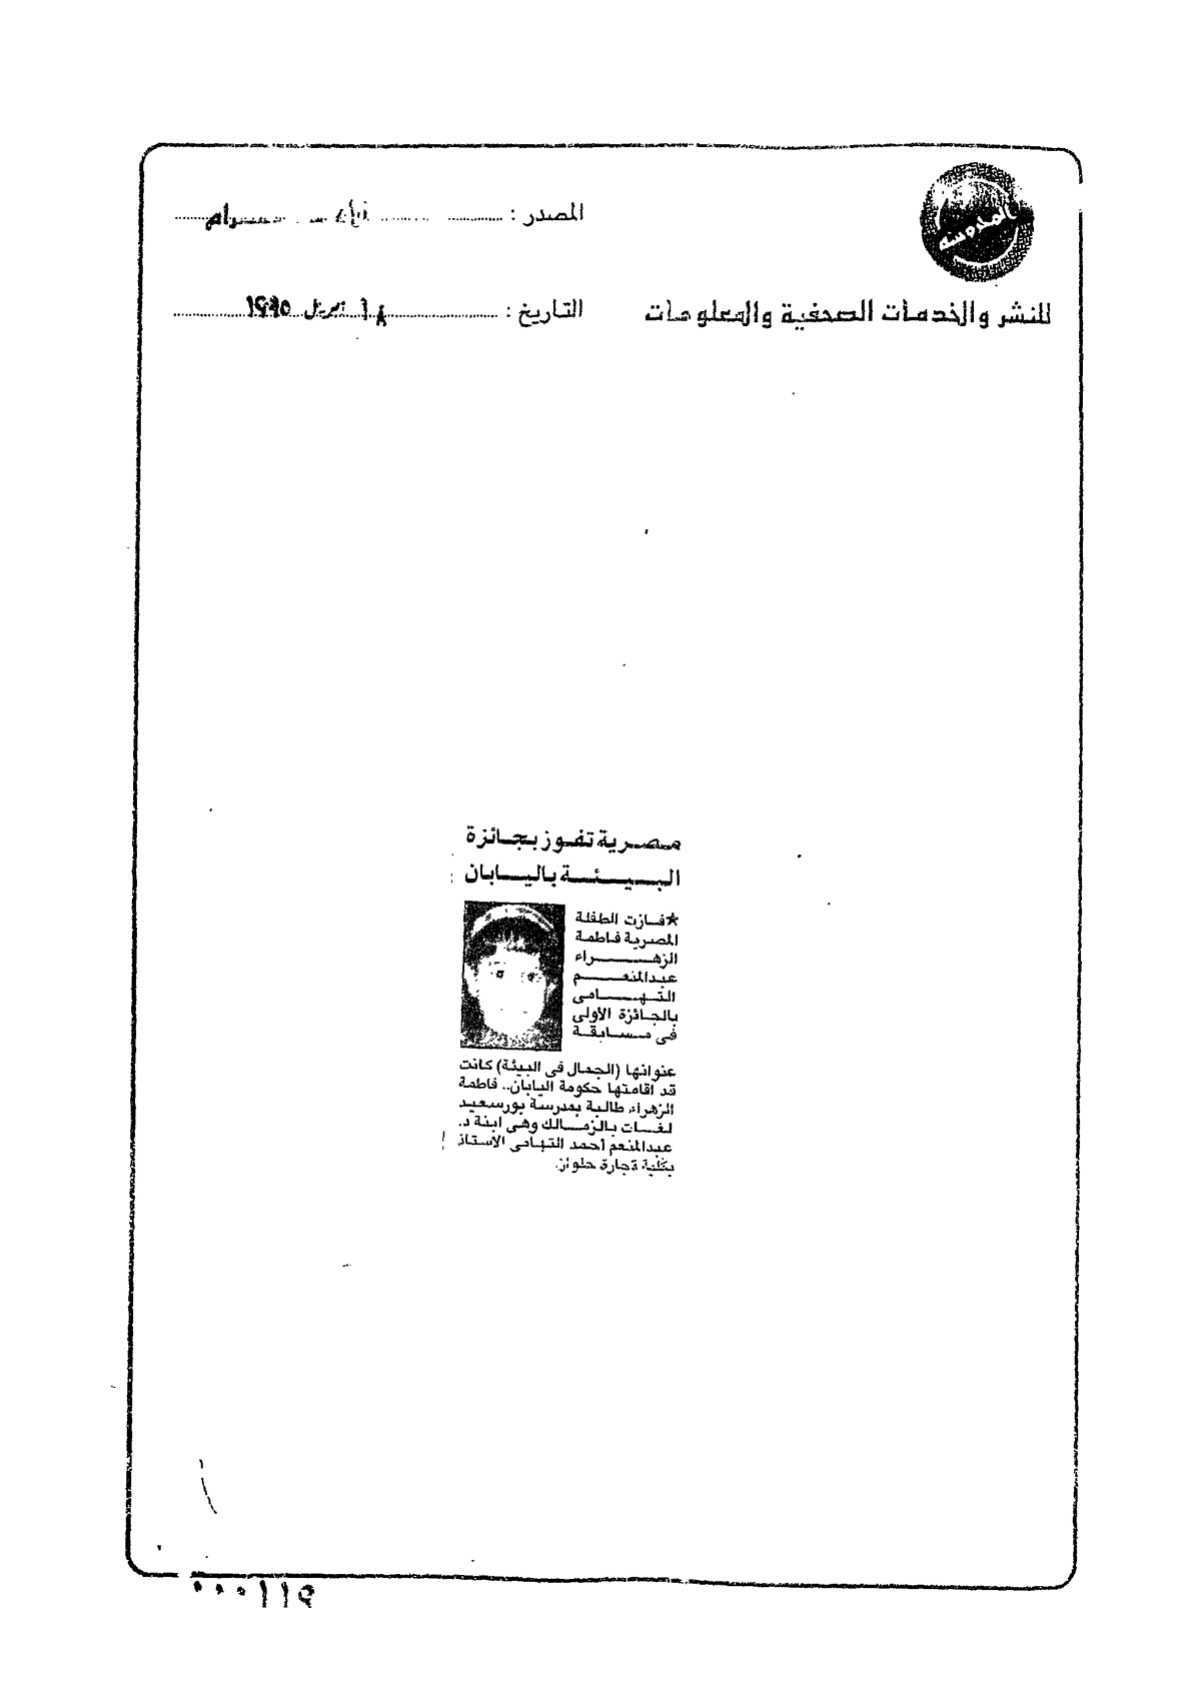 المدوسه
المصدر :
للنشر والخدمات الصحفية والمعلومات
التاريخ : ابريل ١٩٩٥
مصرية تفوز بجائزة
البيئة باليابان
★فازت الطفلة
المصرية فاطمة
الزهراء
عبدالمنعم
التهامى
بالجائزة الأولى
فى مسابقة
عنوانها (الجمال فى البيئة) كانت
قد اقامتها حكومة اليابان.. فاطمة
الزهراء طالبة بمدرسة بورسعيد
لغات بالزمالك وهى ابنة د.
عبدالمنعم أحمد التهامى الاستاذ
بكلية تجارة حلوان.
٠٠٠١١٩